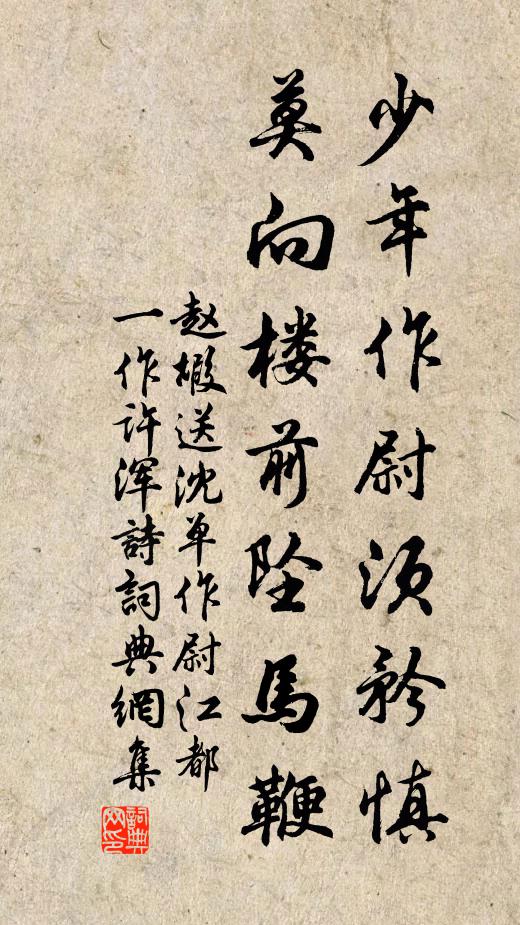 少年作尉须矜慎
莫向楼前坠馬鞭
赵嘏送沈单作尉江都
一作许浑詩詞典網集
詞典网印